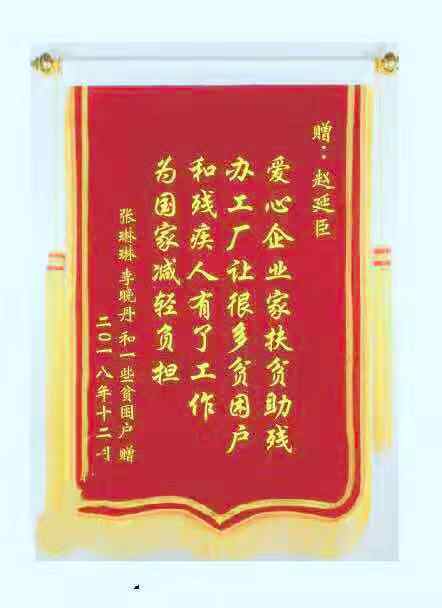 赠：赵延臣
爱心企业家扶贫助残
办工厂让很多贫困户
和残疾人有了工作
为国家减轻负担
张琳琳 李晓丹 和一些贫困户 赠
二〇一八年十二月